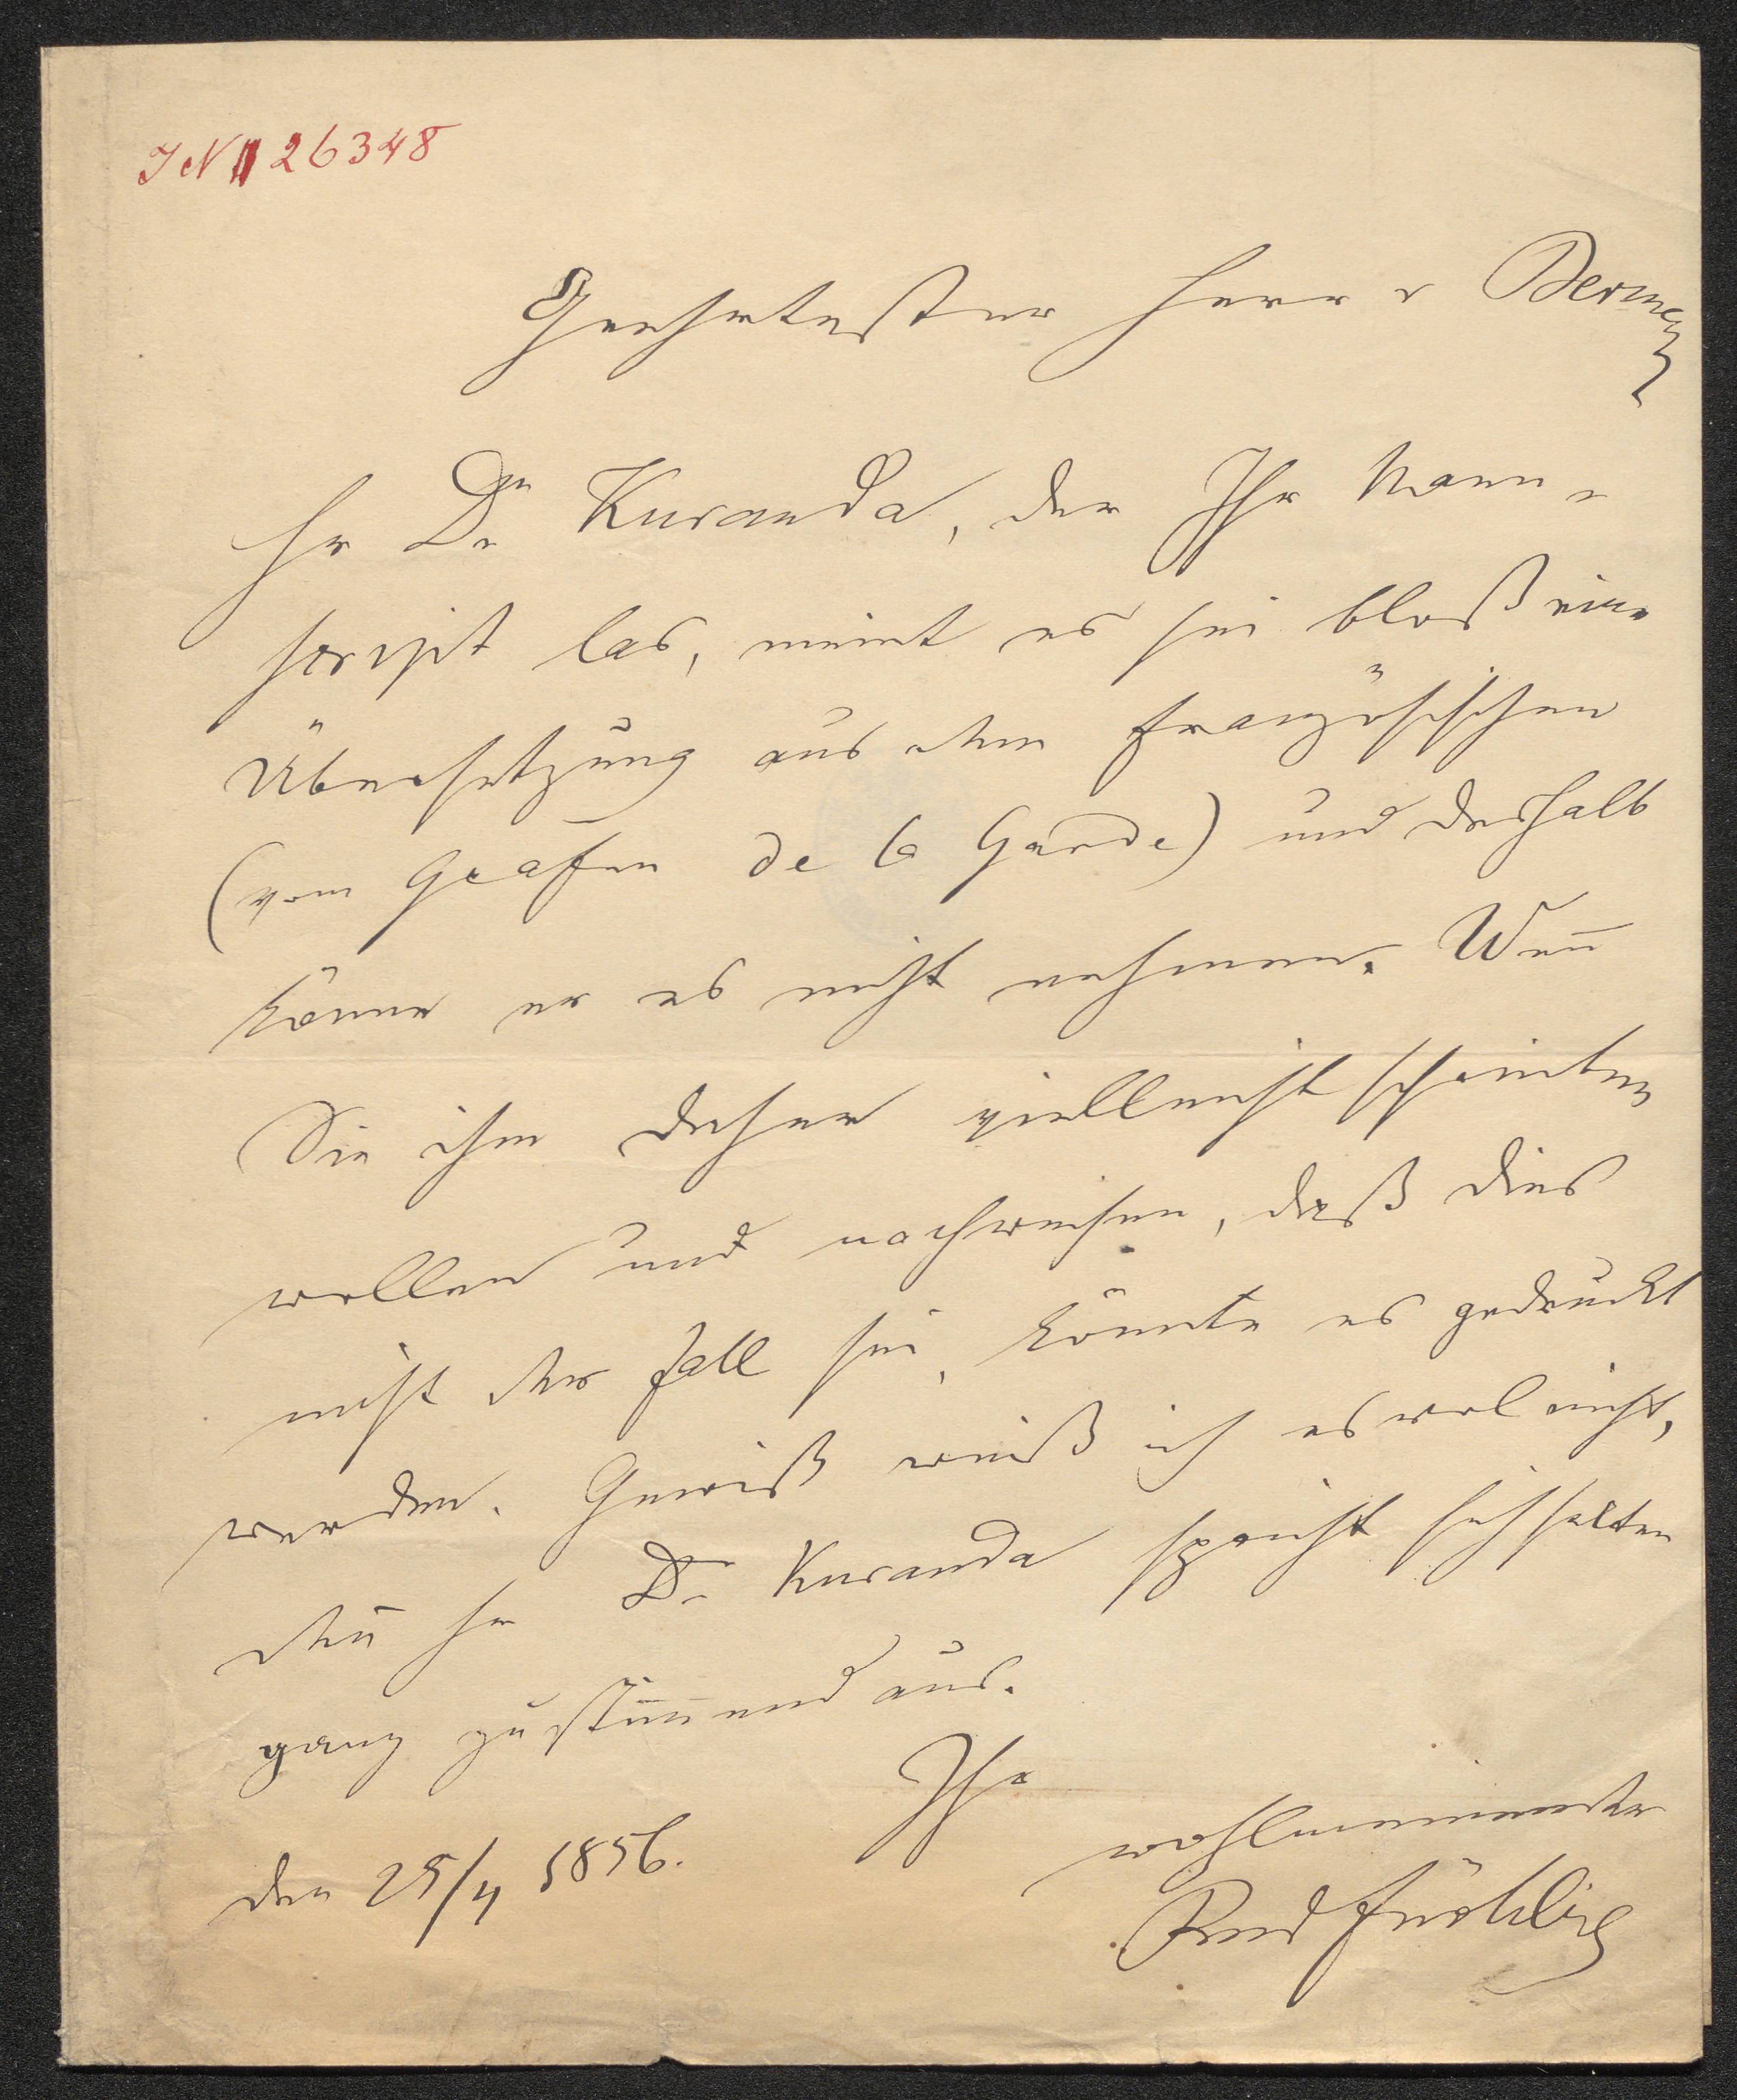 IN 26348
Geehrtester Herr v
Hr Dr Kuranda, der Ihr Manu-
script las, meint es sei bloß eine
Übersetzung aus dem französischen
(vom Grafen de la Garde) und deshalb
könne er es nicht nehmen. Wen̅
Sie ihm daher vielleicht schreiben
wollen und nachweisen, daß dies
nicht der Fall sei, könnte es gedruckt
werden. Gewiß weiß ich es wol nicht,
den̅ Hr Dr Kuranda spricht sich selten
ganz zustim̅end aus.
Ihr
wohlmeinender
den 25/4 1856.